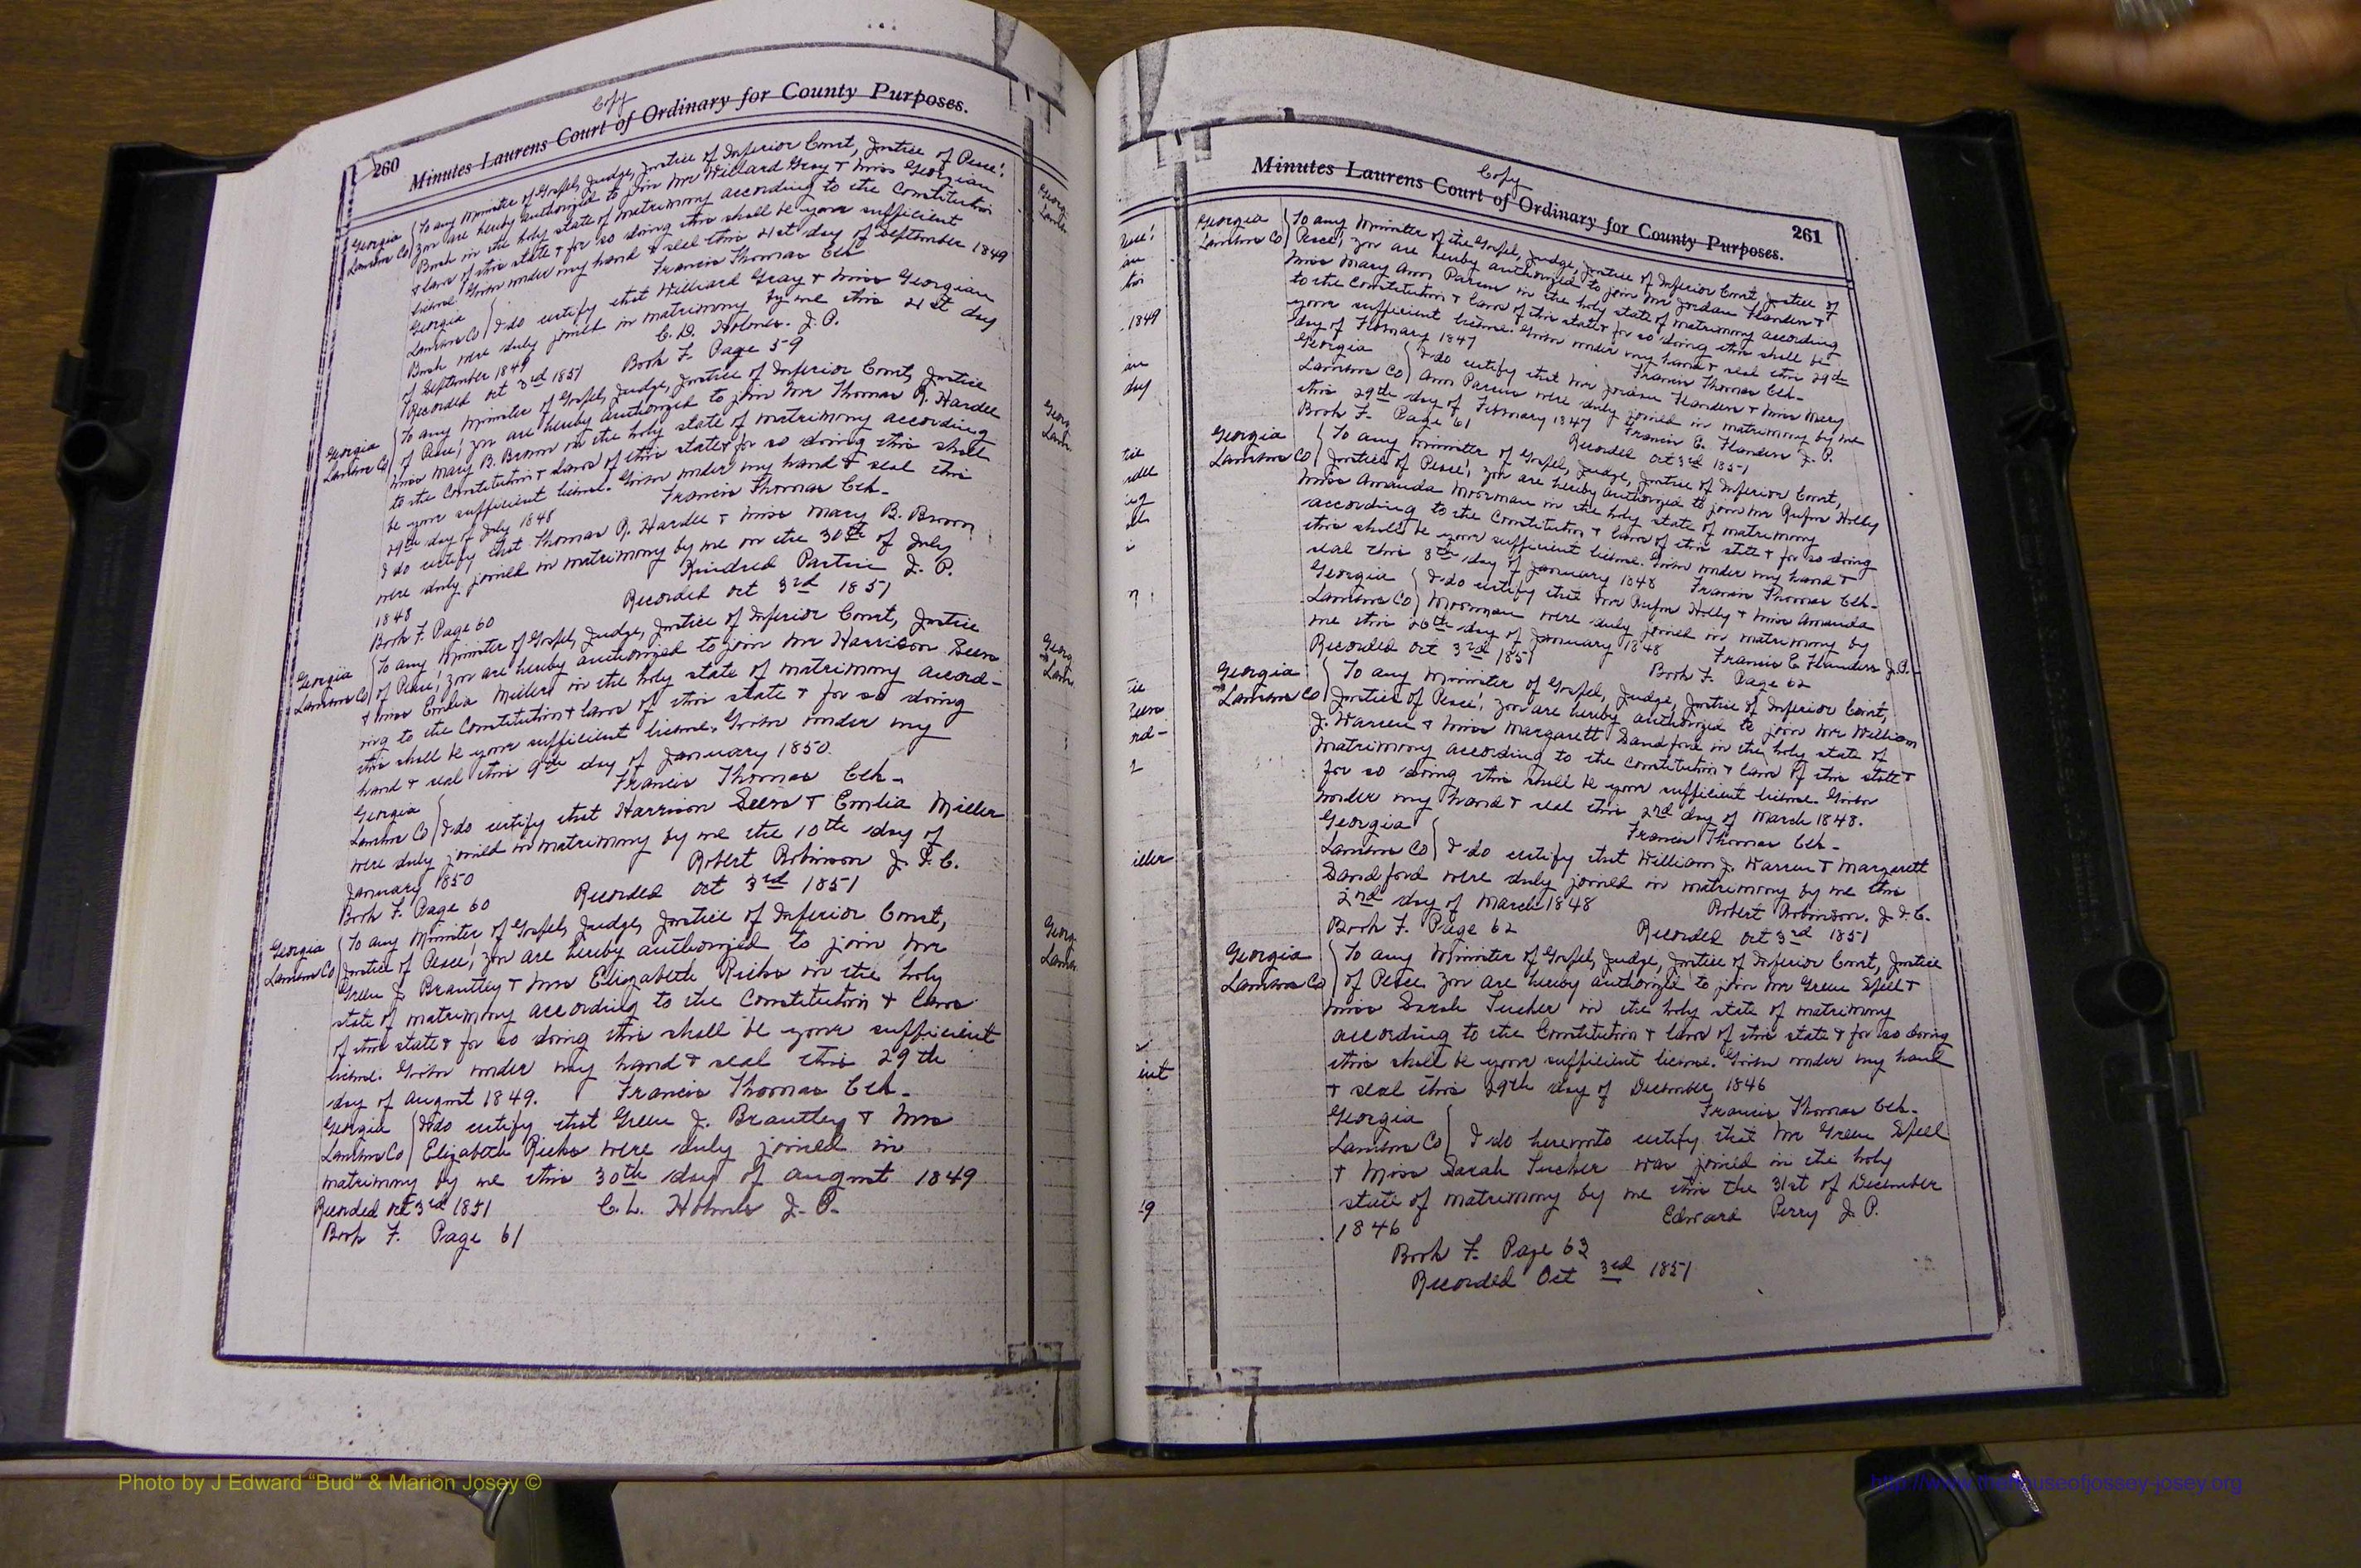 Copy
260 Minutes Laurens Court of Ordinary for County Purposes.
Georgia
Laurens Co
To any Minister of Gospel, Judge, Justice of Inferior Court, Justice of Peace!
you are hereby authorized to join Mr Willard Gray & Miss Georgian
Bush in the holy state of matrimony according to the Constitution
& laws of this state & for so doing this shall be your sufficient
license Given under my hand & seal this 21st day of September 1849
Francis Thomas Clk
Georgia
Laurens Co
I do certify that Williard Gray & Miss Georgian
Bush were duly joined in matrimony by me this 21st day
of September 1849 C. D. Holmes. J. P.
Recorded Oct 3rd 1851 Book F. Page 59
Georgia
Laurens Co
To any Minister of Gospel, Judge, Justice of Inferior Court, Justice
of Peace, you are hereby authorized to join Mr Thomas R. Hardee
Miss Mary B. Brown in the holy state of matrimony according
to the Constitution & Laws of this state & for so doing this shall
be your sufficient license. Given under my hand & seal this
29th day of July 1848 Francis Thomas Clk-
I do certify that Thomas R. Hardee & Miss Mary B. Brown
were duly joined in matrimony by me on the 30th of July
1848 Kindred Partin J. P.
Book F. Page 60 Recorded Oct 3rd 1851
Georgia
Laurens Co
To any Minister of Gospel, Judge, Justice of Inferior Court, Justice
of Peace, you are hereby authorized to join Mr Harrison Seers
& Miss Emelia Millers in the holy state of matrimony accord-
ing to the Constitution & laws of this state & for so doing
this shall be your sufficient license. Given under my
hand & seal this 9th day of January 1850.
Francis Thomas Clk-
Georgia
Laurens Co
I do certify that Harrison Seers & Emelia Miller
were duly joined in matrimony by me the 10th day of
January 1850 Robert Robinson J. I. C.
Book F. Page 60 Recorded Oct 3rd 1851
Georgia
Laurens Co
To any Minister of Gospel, Judge, Justice of Inferior Court,
Justice of Peace, you are hereby authorized to join Mr
Green J. Brantley & Mrs Elizabeth Ricks in the holy
state of matrimony according to the Constitution & laws
of this state & for so doing this shall be your sufficient
license. Given under my hand & seal this 29th
day of August 1849. Francis Thomas Clk-
Georgia
Laurens Co
I do certify that Green J. Brantley & Mrs
Elizabeth Ricks were duly joined in
matrimony by me this 30th day of August 1849
Recorded Oct 3rd 1851 C. L. Holmes J. P.
Book F. Page 61
Copy
Minutes Laurens Court of Ordinary for County Purposes. 261
Georgia
Laurens Co
To any Minister of the Gospel, Judge, Justice of Inferior Court, Justice of
Peace, you are hereby authorized to join Mr Jordan Flanders &
Miss Mary Ann in the holy state of matrimony according
to the Constitution & laws of this state & for so doing this shall be
your sufficient license. Given under my hand & seal this 29th
day of February 1847 Francis Thomas Clk-
Georgia
Laurens Co
I do certify that Mr Jordan Flanders & Miss Mary
Ann were duly joined in matrimony by me
this 29th day of February 1847 Francis E. Flanders J. P.
Book F. Page 61 Recorded Oct 3rd 1851
Georgia
Laurens Co
To any Minister of Gospel, Judge, Justice of Inferior Court,
Justice of Peace, you are hereby authorized to join Mr Rufus Holly
Miss Amanda Moorman in the holy state of matrimony
according to the Constitution & laws of this state & for so doing
this shall be your sufficient license. Given under my hand &
seal this 8th day of January 1848 Francis Thomas Clk-
Georgia
Laurens Co
I do certify that Mr Rufus Holly & Miss Amanda
Moorman were duly joined in matrimony by
me this 20th day of January 1848 Francis E Flanders J. P.
Recorded Oct 3rd 1851 Book F. Page 62
Georgia
Laurens Co
To any Minister of Gospel, Judge, Justice of Inferior Court,
Justice of Peace, you are hereby authorized to join Mr William
J. Warren & Miss Margarett Sandford in the holy state of
matrimony according to the Constitution & laws of this state &
for so doing this shall be your sufficient license. Given
under my hand & seal this 2nd day of March 1848.
Francis Thomas Clk-
Georgia
Laurens Co
I do certify that William J. Warren & Margarett
Sandford were duly joined in matrimony by me this
2nd day of March 1848 Robert Robinson. J. I. C.
Book F. Page 62 Recorded Oct 3rd 1851
Georgia
Laurens Co
To any Minister of Gospel, Judge, Justice of Inferior Court, Justice
of Peace you are hereby authorized to join Mr Green Spell &
Miss Sarah Tucker in the holy state of matrimony
according to the Constitution & laws of this state & for so doing
this shall be your sufficient license. Given under my hand
& seal this 29th day of December 1846
Francis Thomas Clk-
Georgia
Laurens Co
I do hereunto certify that Mr Green Spell
& Miss Sarah Tucker was joined in the holy
state of matrimony by me this the 31st of December
1846 Edward Perry J. P.
Book F. Page 63
Recorded Oct 3rd 1851
Photo by J Edward “Bud” & Marion Josey ©
http://www.thehouseofjossey-josey.org